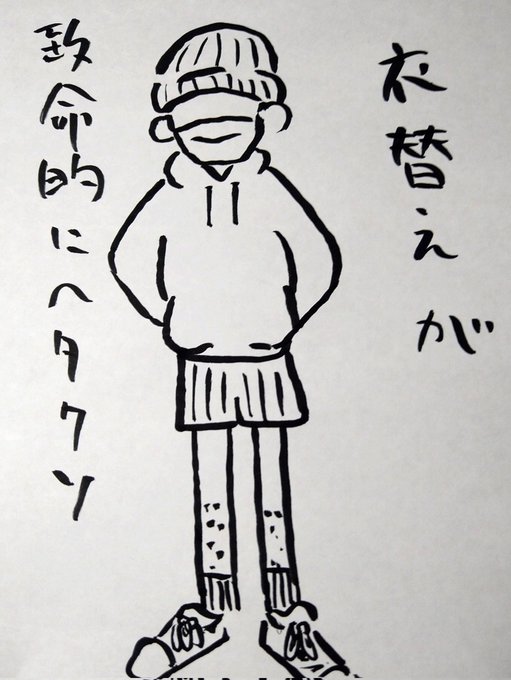 衣替えが
致命的にヘタクソ